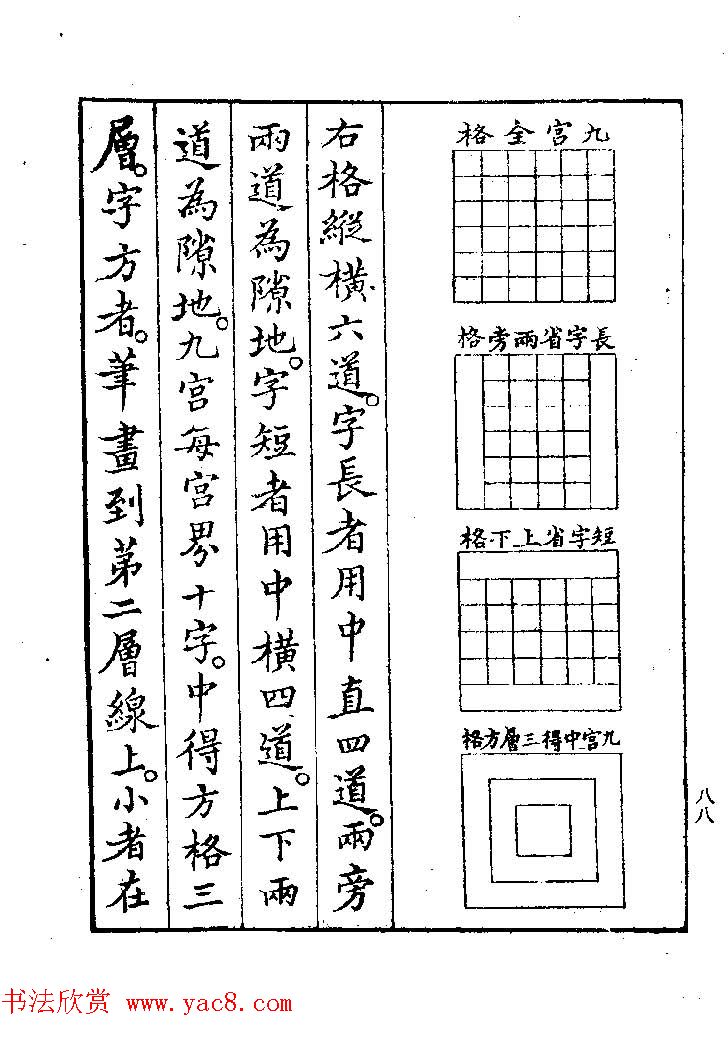 九宮全格
長字省兩旁格
短字省上下格
九宮中得三層方格
右格縱橫六道。字長者用中直四道。兩旁
兩道為隙地。字短者用中橫四道。上下兩
道為隙地。九宮每宮界十字。中得方格三
層。字方者。筆畫到第二層線上。小者在
八八
书法欣赏 www.yac8.com